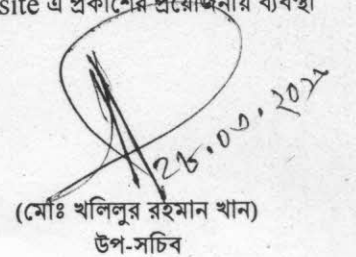 site এ প্রকাশের প্রয়োজনীয় ব্যবস্থা
(মোঃ খলিলুর রহমান খান)
উপ-সচিব